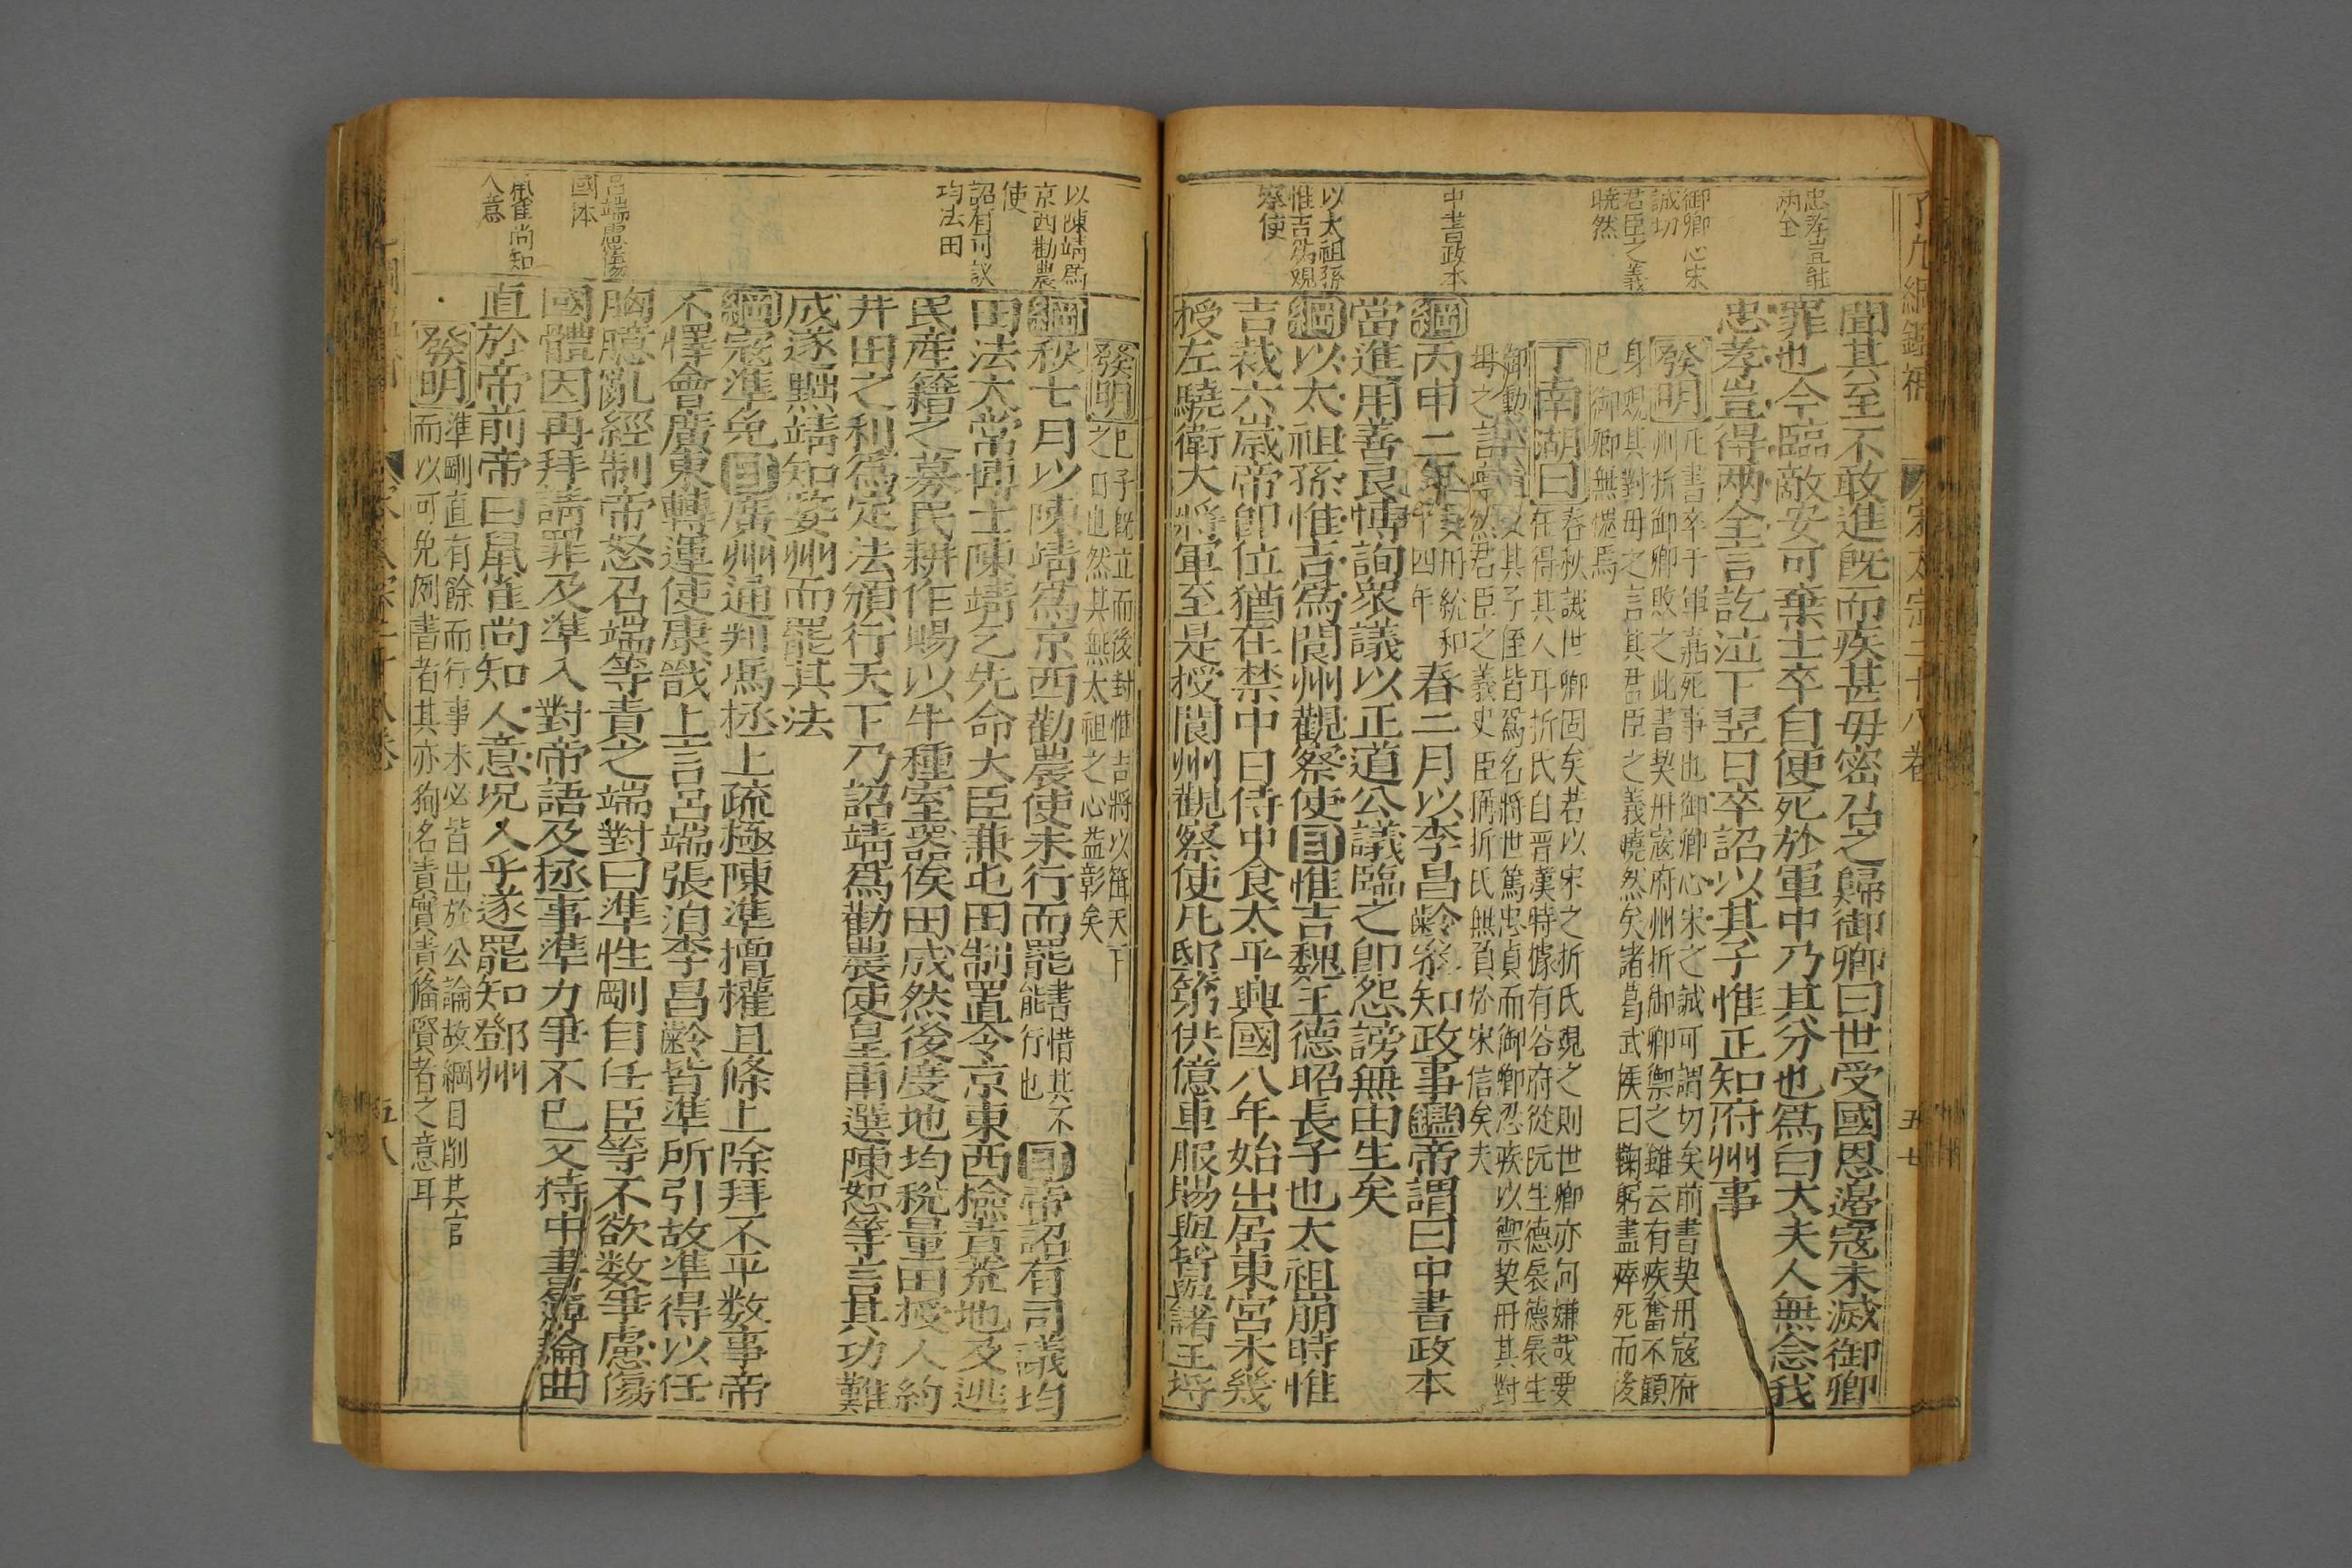 了凡綱鑑補
宋太宗二十八卷
五七
忠孝豈能
兩全
御卿心宋
誠切
君臣之義
曉然
中書政本
以太祖孫
惟吉為觀
察使
聞其至不敢進既而疾甚母密召之歸御卿曰世受國恩邉寇未滅御卿
罪也今臨敵安可棄士卒自便死於軍中乃其分也為白大夫人無念我
忠孝豈得兩全言訖泣下翌日卒詔以其子惟正知府州事
發明
凡書卒于軍嘉死事也御卿心宋之誠可謂切矣前書契丹寇府
州折御卿敗之此書契丹寇府州折御卿禦之雖云有疾奮不顧
身觀其對母之言其君臣之義曉然矣諸葛武侯曰鞠躬盡瘁死而後
已御卿無愧焉
丁南湖曰
春秋譏世卿固矣若以宋之折氏觀之則世卿亦何嫌哉要
在得其人耳折氏自晉漢特據有谷府從阮生德扆德扆生
御勳御卿以其子侄皆為名將世篤忠貞而御卿忍疾以禦契丹其對
母之言凜然君臣之義史臣稱折氏無負於宋信矣夫
綱丙申二年
契丹統和
十四年
春二月以李昌齡參知政事鑑帝謂曰中書政本
當進用善良博詢衆議以正道公議臨之卽怨謗無由生矣
綱以太祖孫惟吉為閬州觀察使目惟吉魏王德昭長子也太祖崩時惟
吉裁六歲帝卽位猶在禁中日侍中食太平興國八年始出居東宮未幾
授左驍衛大將軍至是授閬州觀察使凡邸第供億車服賜與皆與諸王埒
以陳靖為
京西勸農
使
詔有司議
均法田
呂端慮傷
國体
鼠雀尚知
人意
發明
已子既立而後封惟吉將以箝天下
之口也然其無太祖之心益彰矣
綱秋七月以陳靖為京西勸農使未行而罷
書惜其不
能行也
目帝詔有司議均
田法太常博士陳靖乞先命大臣兼屯田制置令京東西檢責荒地及逃
民產籍之募民耕作賜以牛種室器俟田成然後度地均稅量田授人約
井田之利為定法頒行天下乃詔靖為勸農使皇甫選陳恕等言其功難
成遂黜靖知婺州而罷其法
綱寇準免目廣州通判馮拯上疏極陳準擅權且條上除拜不平数事帝
不懌會廣東轉運使康戩上言呂端張洎李昌齡皆準所引故準得以任
胸臆亂經制帝怒召端等責之端對曰準性剛自任臣等不欲数爭慮傷
國體因再拜請罪及準入對帝語及拯事準力爭不已又持中書簿論曲
直於帝前帝曰鼠雀尚知人意况人乎遂罷知鄧州
發明
準剛直有餘而行事未必皆出於公論故綱目削其官
而以可免例書者其亦狥名責實責偹賢者之意耳
五八